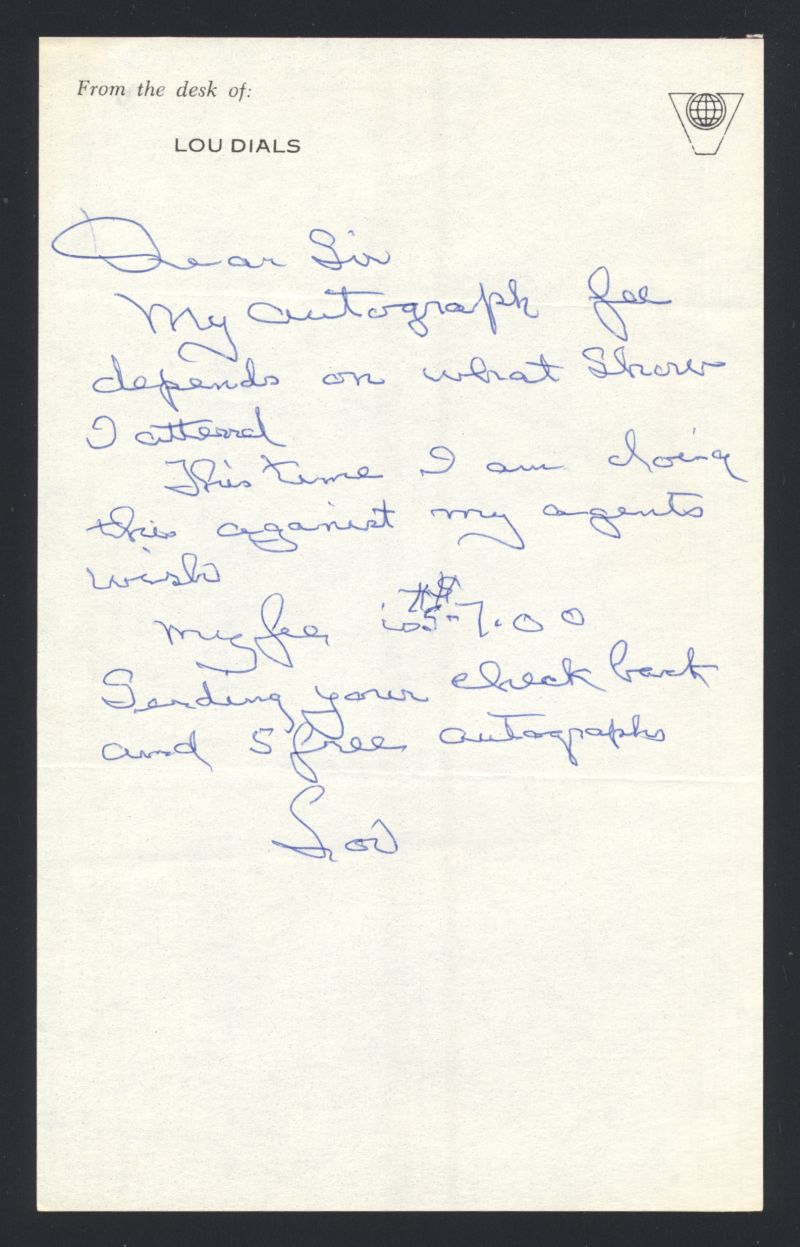 From the desk of:
LOU DIALS
Dear Sir
My autograph fee
depends on what Show
I attend
This time I am doing
this against my agents
wish
My fee is $5-7.00
Sending your check back
and 5 free autographs
Lou